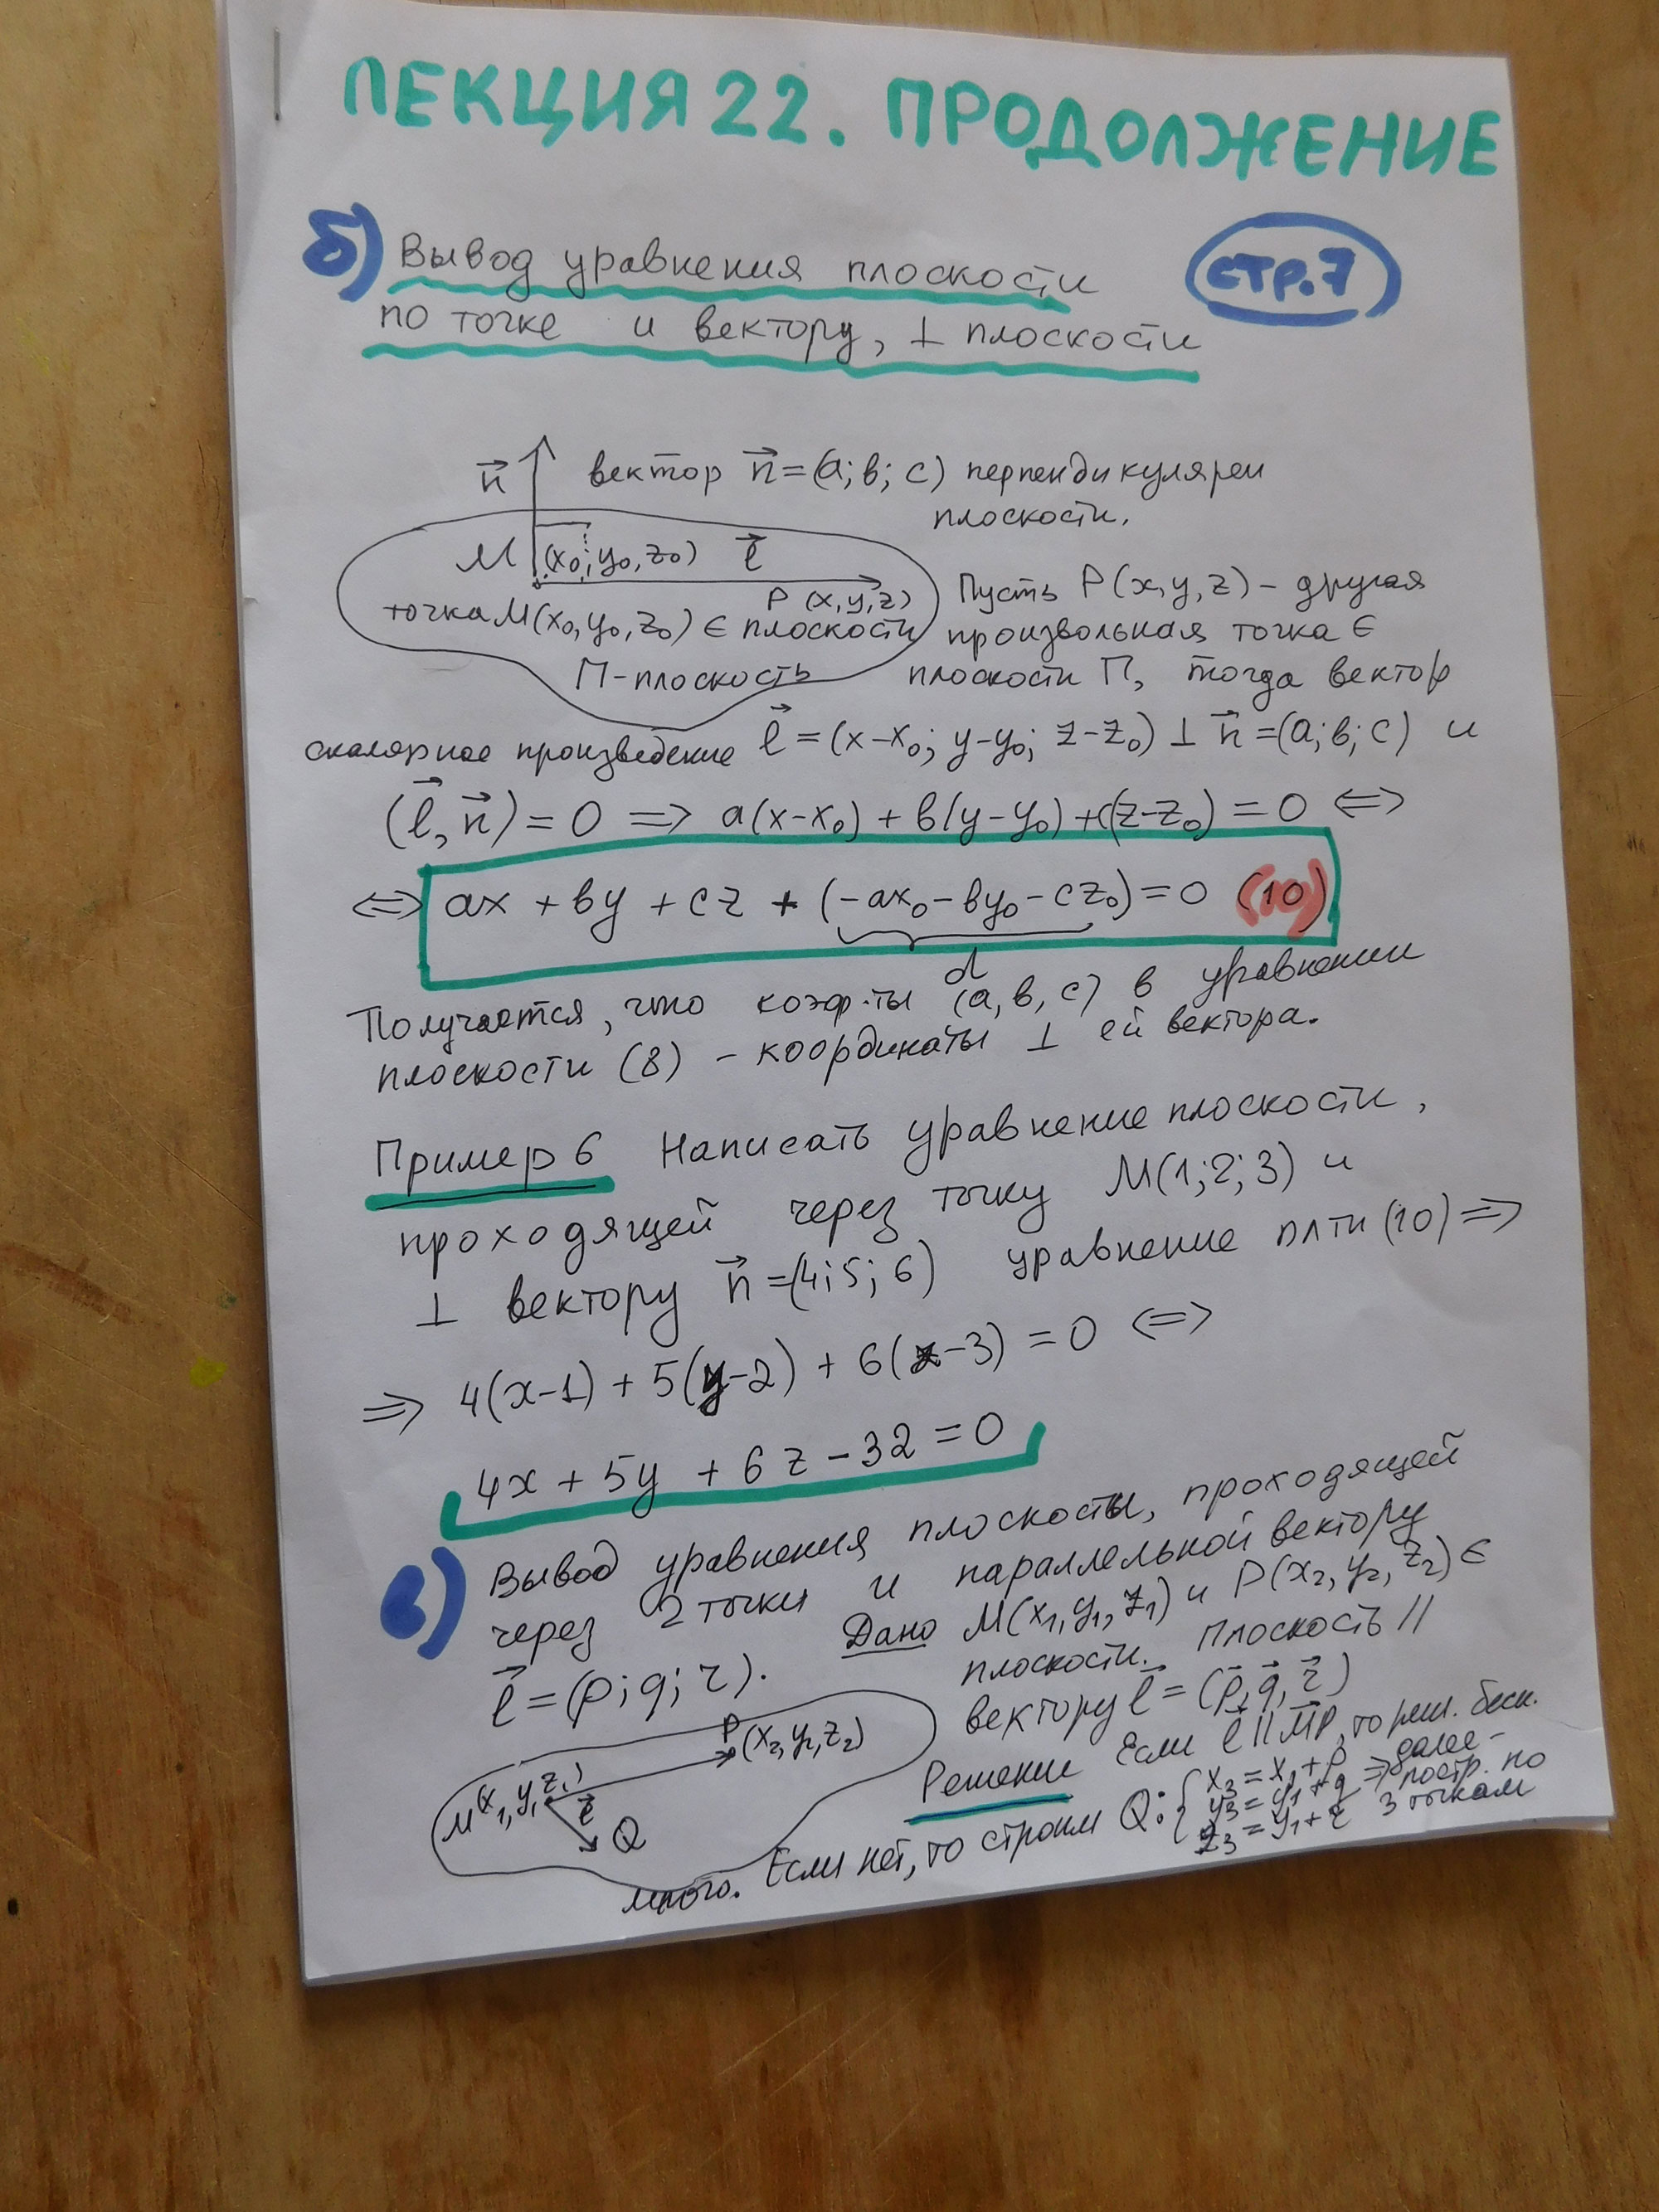 ЛЕКЦИЯ 22. ПРОДОЛЖЕНИЕ
б) Вывод уравнения плоскости
стр. 7
по точке и вектору, ⊥ плоскости
n⃗ вектор n⃗ = (a; в; c) перпендикулярен
плоскости.
M (x₀; y₀, z₀) ℓ⃗
P (x, y, z)
точка M(x₀, y₀, z₀) ∈ плоскости
П-плоскость
Пусть P(x, y, z) – другая
произвольная точка ∈
плоскости П, тогда вектор
скалярное произведение ℓ⃗ = (x-x₀; y-y₀; z-z₀) ⊥ n⃗ = (a; в; c) и
(ℓ⃗, n⃗) = 0 => a(x-x₀) + в(y-y₀) + c(z-z₀) = 0 <=>
<=> ax + вy + cz + (-ax₀ - вy₀ - cz₀) = 0 (10)
d
Получается, что коэф-ты (a, в, c) в уравнении
плоскости (8) – координаты ⊥ ей вектора.
Пример 6 Написать уравнение плоскости,
проходящей через точку M(1; 2; 3) и
⊥ вектору n⃗ = (4; 5; 6) уравнение пл-ти (10) =>
=> 4(x-1) + 5(y-2) + 6(z-3) = 0 <=>
4x + 5y + 6z - 32 = 0
в) Вывод уравнения плоскости, проходящей
через 2 точки и параллельной вектору
ℓ⃗ = (p; q; r). Дано M(x₁, y₁, z₁) и P(x₂, y₂, z₂) ∈
плоскости. Плоскость //
вектору ℓ⃗ = (p⃗, q⃗, r⃗)
M(x₁, y₁, z₁) ℓ⃗ Q
P(x₂, y₂, z₂)
Решение Если ℓ⃗ || MP⃗, то реш. беск.
много. Если нет, то строим Q: { x₃ = x₁ + p
y₃ = y₁ + q => далее -
z₃ = y₁ + r постр. по
3 точкам